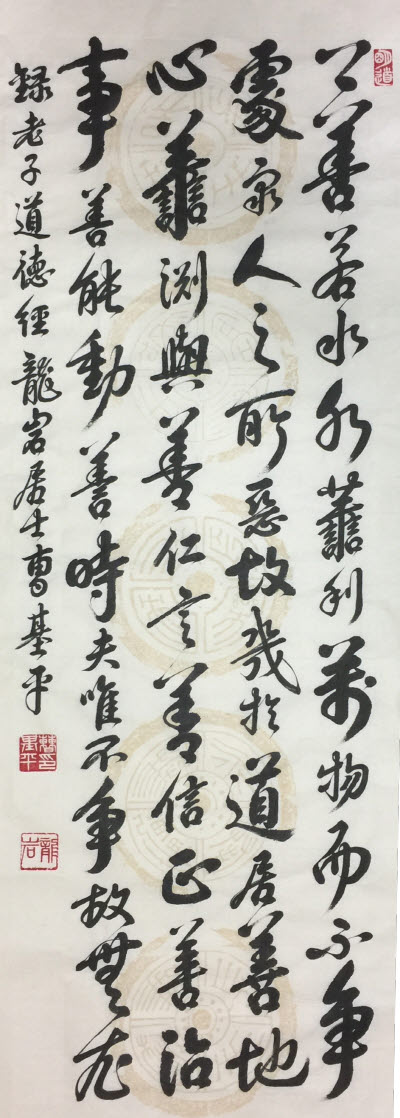 上善若水水善利萬物而不争
處衆人之所惡故幾於道居善地
心善渊與善仁言善信正善治
事善能動善時夫唯不争故無尤
錄老子道德經龍岩居士曹基平
龍岩